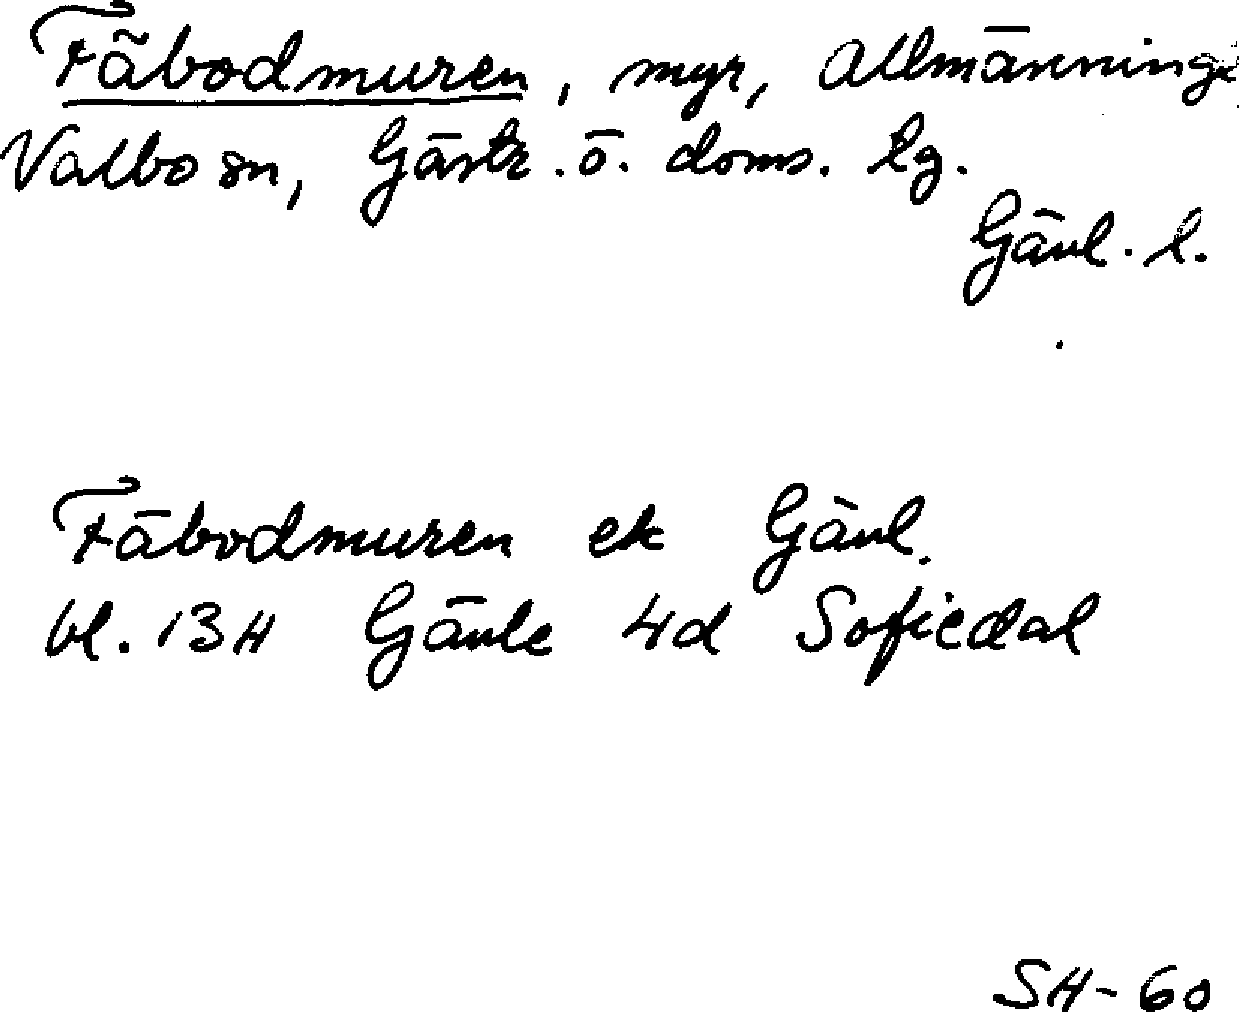 Fäbodmuren, myr, Allmänninge
Valbo sn, Gästr. ö. doms. lg.
Gävl. l.
Fäbodmuren ek Gävl.
bl. 13H Gävle 4d Sofiedal
SH-60